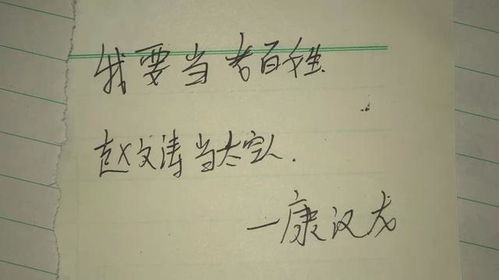 我要当老百姓
赵文涛当太空人.
一康汉龙